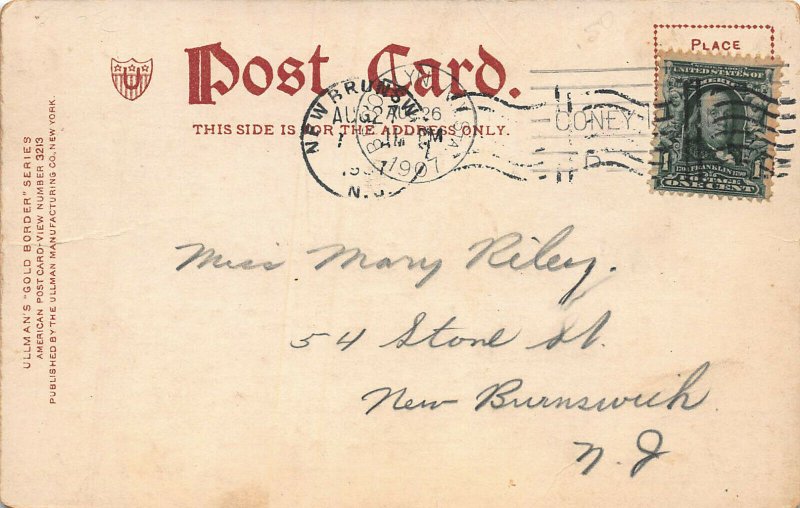 Post Card.
PLACE
THIS SIDE IS FOR THE ADDRESS ONLY.
U
NEW BRUNSW
AUG 27
AM
N.J.
AUG 26
PM
1907
CONEY I
UNITED STATES OF
FRANKLIN
1 1
ONE CENT
Miss Mary Riley.
54 Stone St.
New Burnswick.
N. J
ULLMAN'S "GOLD BORDER" SERIES
AMERICAN POST CARD-VIEW NUMBER 3213
PUBLISHED BY THE ULLMAN MANUFACTURING CO., NEW YORK.